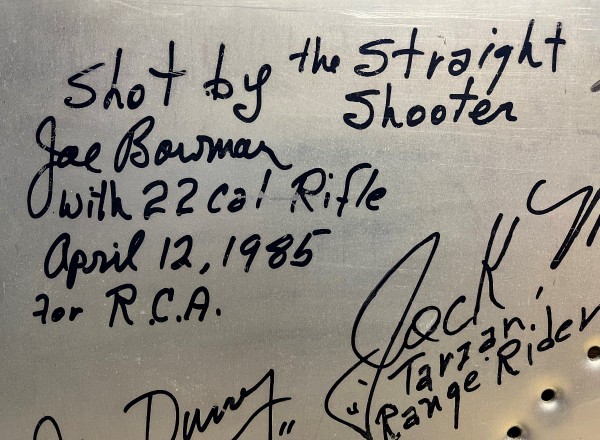 Shot by the Straight
Shooter
Joe Bowman
with 22 cal Rifle
April 12, 1985
for R.C.A.
Jock
Tarzan.
Range Rider
"
"